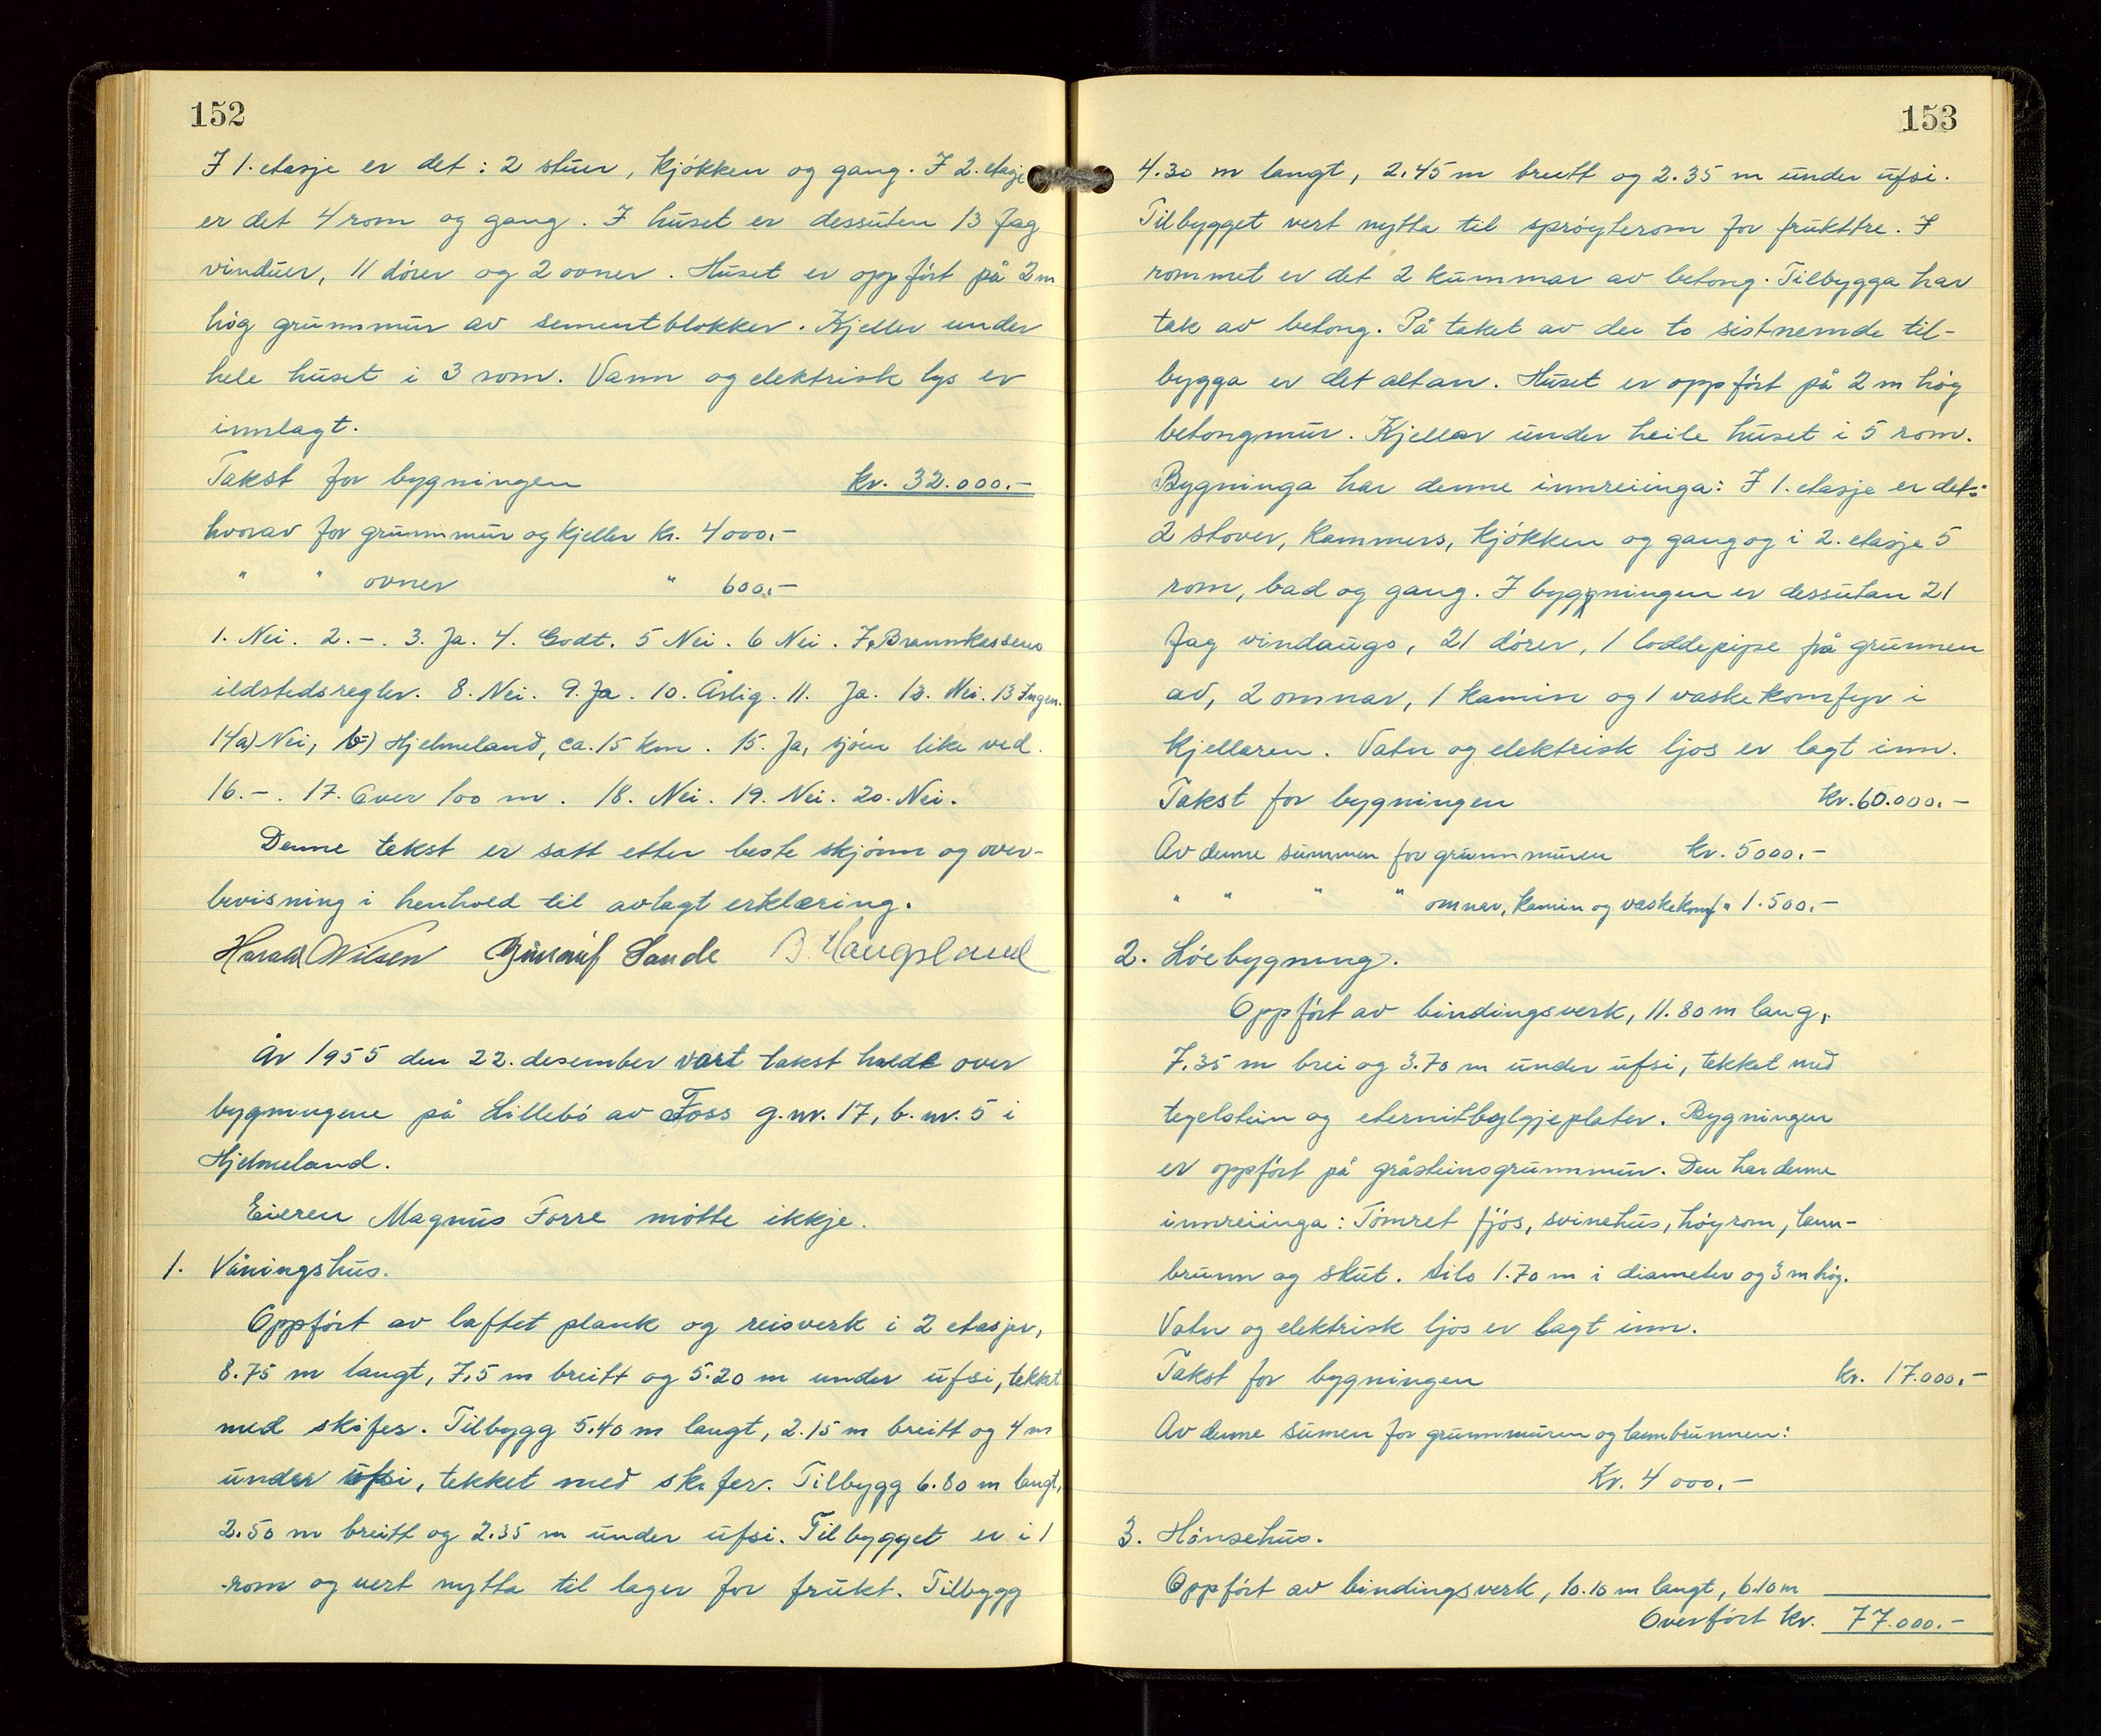 152
I 1. etasje er det: 2 stuer, kjøkken og gang. I 2. etasje
er det 4 rom og gang. I huset er dessuten 13 fag
vinduer, 11 dører og 2 ovner. Huset er oppført på 2 m
høg grunnmur av sementblokker. Kjeller under
hele huset i 3 rom. Vann og elektrisk lys er
innlagt.
Takst for bygningen kr. 32.000.-
hvorav for grunnmur og kjeller kr. 4000.-
" " ovner " 600.-
1. Nei. 2. -. 3. Ja. 4. Godt. 5 Nei. 6 Nei. 7. Brannkassens
ildstedsregler. 8. Nei. 9. Ja. 10. Årlig. 11. Ja. 12. Nei. 13 Ingen.
14a) Nei, b) Hjelmeland, ca. 15 km. 15. Ja, sjøen like ved.
16. -. 17. Over 100 m. 18. Nei. 19. Nei. 20. Nei.
Denne takst er satt etter beste skjønn og over-
bevisning i henhold til avlagt erklæring.
Harald Nilsen Sande B. Haugsland
År 1955 den 22. desember vart takst halde over
bygningene på Lillebø av Foss g.nr. 17, b.nr. 5 i
Hjelmeland.
Eieren Magnus Forre møtte ikkje.
1. Våningshus.
Oppført av laftet plank og reisverk i 2 etasjer,
8.75 m langt, 7.5 m breitt og 5.20 m under ufsi, tekket
med skifer. Tilbygg 5.40 m langt, 2.15 m breitt og 4 m
under ufsi, tekket med skifer. Tilbygg 6.80 m langt,
2.50 m breitt og 2.35 m under ufsi. Tilbygget er i 1
rom og vert nytta til lager for frukt. Tilbygg
153
4.30 m langt, 2.45 m breitt og 2.35 m under ufsi.
Tilbygget vert nytta til sprøyterom for frukttre. I
rommet er det 2 kummar av betong. Tilbygga har
tak av betong. På taket av dei to sistnemde til-
bygga er det altan. Huset er oppført på 2 m høg
betongmur. Kjellar under heile huset i 5 rom.
Bygninga har denne innreiinga: I 1. etasje er det:
2 stover, kammers, kjøkken og gang og i 2. etasje 5
rom, bad og gang. I bygningen er dessutan 21
fag vindaugo, 21 dører, 1 loddepipe frå grunnen
av, 2 omnar, 1 kamin og 1 vaskekomfyr i
kjellaren. Vatn og elektrisk ljos er lagt inn.
Takst for bygningen kr. 60.000.-
Av denne summen for grunnmuren kr. 5000.-
" " " " omnar, kamin og vaskekomf " 1.500.-
2. Løebygning.
Oppført av bindingsverk, 11.80 m lang,
7.35 m brei og 3.70 m under ufsi, tekket med
tegelstein og eternitbølgjeplater. Bygningen
er oppført på gråsteinsgrunnmur. Den har denne
innreiinga: Tømret fjøs, svinehus, høyrom, lann-
brunn og skut. Silo 1.70 m i diameter og 3 m høg.
Vatn og elektrisk ljos er lagt inn.
Takst for bygningen kr. 17.000.-
Av denne sumen for grunnmuren og lannbrunnen:
Kr. 4 000.-
3. Hønsehus.
Oppført av bindingsverk, 10.10 m langt, 6.10 m
Overført kr. 77.000.-